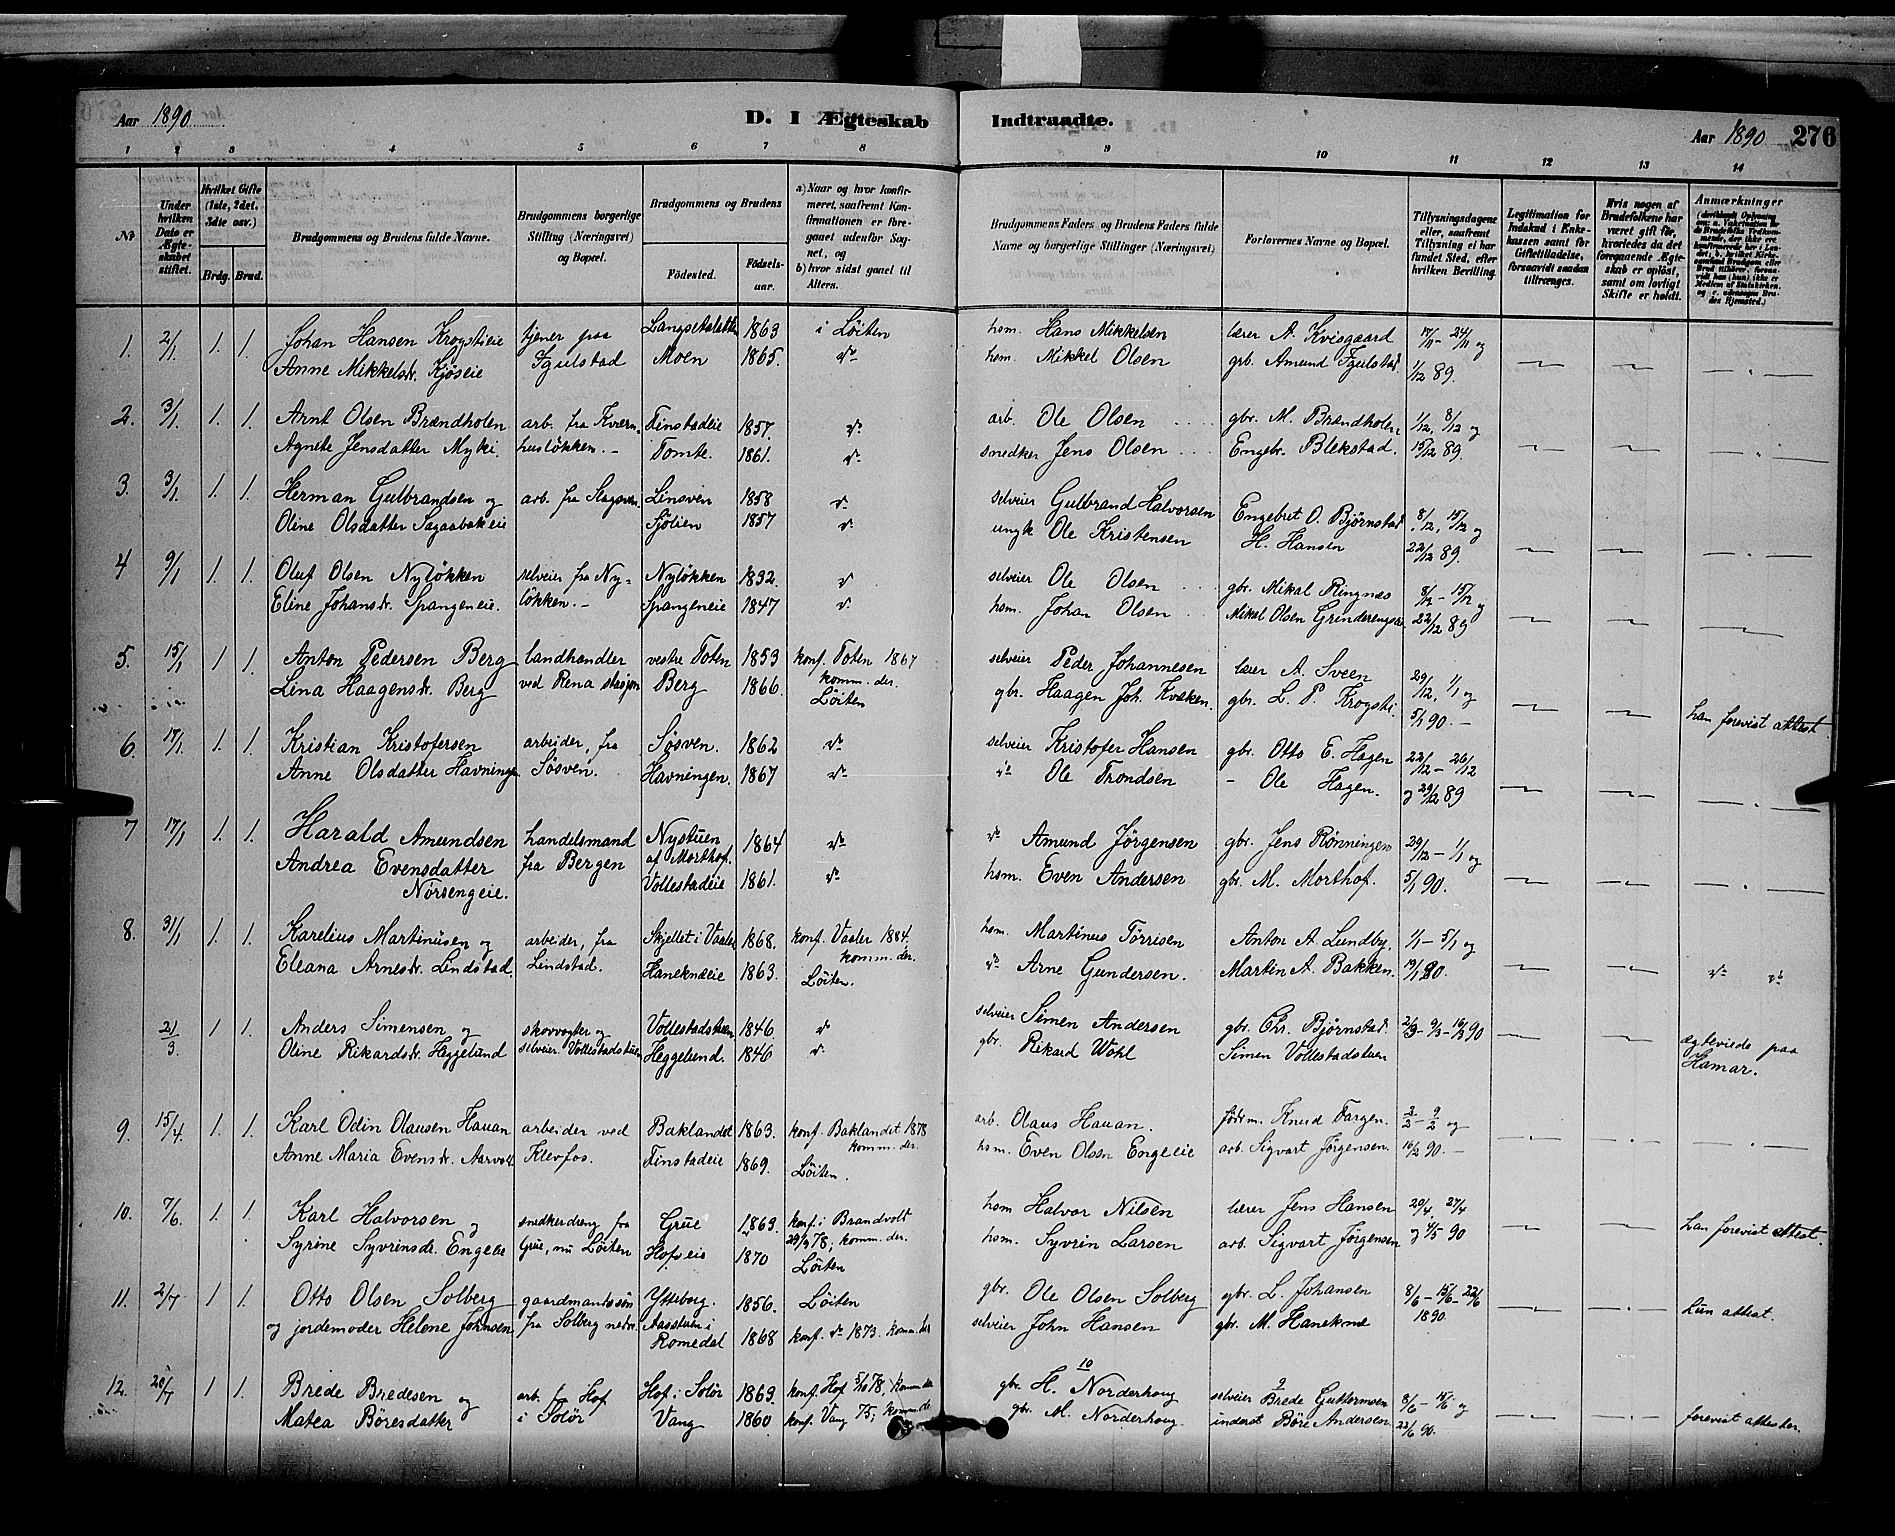 Aar 1890. D. I Ægteskab Indtraadte. Aar 1890 276
1 2 3 4 5 6 7 8 9 10 11 12 13 14
№
Under hvilken Dato er Ægteskabet stiftet.
Hvilket Gifte (1ste, 2det, 3die osv.)
Brdg. Brud.
Brudgommens og Brudens fulde Navne.
Brudgommens borgerlige Stilling (Næringsvei) og Bopæl.
Brudgommens og Brudens
Fødested. Fødselsaar.
a) Naar og hvor konfirmeret, saafremt Konfirmationen er foregaaet udenfor Sognet, og
b) hvor sidst gaaet til Alters.
Brudgommens Faders og Brudens Faders fulde Navne og borgerlige Stillinger (Næringsvei)
Forlovernes Navne og Bopæl.
Tillysningsdagene eller, saafremt Tillysning ei har fundet Sted, efter hvilken Bevilling.
Legitimation for Indskud i Enkekassen samt for Giftetilladelse, forsaavidt saadan tiltrænges.
Hvis nogen af Brudefolkene har været gift før, hvorledes da det foregaaende Ægteskab er opløst, samt om lovligt Skifte er holdt.
Anmærkninger
1. 2/1 1. 1. Johan Hansen Krogstieie tjener paa Langsetslatten 1863 i Löiten hsm. Hans Mikkelsen lærer A. Kvisgaard 17/11 - 24/11 og
Anne Mikkelsdr. Kjöseie Igulstad Moen 1865. do hsm. Mikkel Olsen grb. Amund Igulstad 1/12 89.
2. 3/1. 1. 1. Arnt Olsen Brændholen arb. fra Kværn- Finstadeie 1857. do arb. Ole Olsen gbr. M. Brændholen 1/12, 8/12 og
Agnete Jensdatter Myki. huslökken. - Tomte. 1861. do snedker Jens Olsen Engebr. Blekstad. 15/12 89.
3. 3/1. 1. 1. Herman Gulbrandsen og arb. fra Linsven 1858 do selveier Gulbrand Halvorsen Engebret O. Björnstad 8/12, 15/12 og
Oline Olsdatter Sagaabakeie Fjölien 1857 do ungk Ole Kristensen H. Hansen 22/12 89.
4 9/1 1. 1. Oluf Olsen Nylökken selveier fra Ny- Nylökken 1832. do selveier Ole Olsen gbr. Mikal Ringnæs 8/12 - 15/12 og
Eline Johansdr. Spangeneie. lökken. - Spangeneie 1847 do hsm. Johan Olsen Mikal Olsen 22/12 89
5. 15/1 1 1. Anton Pedersen Berg landhandler vestre Toten 1853 konf. Toten 1867 selveier Peder Johannesen lærer A. Sveen 29/12, 1/1 og
Lina Haagensdr. Berg ved Rena stasjon Berg 1866. komm. der. Löiten gbr. Haagen Joh. Kvæken. gbr. L. P. Krogsti. 5/1 90. - han forevist attest
6. 17/1. 1. 1. Kristian Kristofersen arbeider, fra Sösven. 1862 do selveier Kristofer Hansen gbr. Otto E. Hagen 22/12 - 26/12
Anne Olsdatter Havningen Sösven. Havningen. 1867 do do Ole Trondsen - Ole Hagen. og 29/12 89
7 17/1 1. 1. Harald Amundsen handelsmand Nystuen af Morthof. 1864 do do Amund Jörgensen gbr. Jens Rönningen 29/12 - 1/1 og
Andrea Evensdatter fra Bergen Vollestadeie 1861. do hsm. Even Andersen gbr. M. Morthof. 5/1 90.
Nörsengeie.
8. 31/1 1. 1. Karelius Martinusen og arbeider, fra Skjellet i Vaaler 1868. konf. Vaaler 1884. hsm. Martinus Törrisen Anton A. Lundby. 1/1 - 5/1 og
Eleana Arnesdr. Lindstad. Lindstad. Haneknæeie 1863. komm. der. Löiten. do Arne Gundersen. Martin A. Bakken. 19/1 90. do do
21/3. 1 1. Anders Simensen og skovvogter og Vollestadstuen 1846. do selveier Simen Andersen gbr. Chr. Björnstad 2/3 - 9/3 - 16/3 90
Oline Rikardsdr. Heggelund selveier Vollestadstuen Heggelund. 1846 do gbr. Rikard Wohl Simen Vollestadstuen ægteviede paa Hamar.
9. 15/4. 1. 1. Karl Odin Olausen Hauan arbeider ved Baklandet 1863. konf. Baklandet 1878 arb. Olaus Hauan. Knud Fargen. 2/2 - 9/2 og
Anne Maria Evensdr. Aarvoll Klevfos. Finstadeie 1869. komm. der. Löiten. hsm. Even Olsen Engeleie arb. Sigvart Jörgensen. 16/2 90. -
10. 7/6. 1. 1. Karl Halvorsen og snedkerdreng fra Grue 1869. konf. i Brandvold hsm Halvor Nilsen lærer Jens Hansen 20/4. 27/4
Syrine Syvrinsdr. Engelie Grue, nu Löiten Hofseie 1870 29/9 78; komm. der. Löiten hsm. Syvrin Larsen arb. Sigvart Jörgensen og 4/5 90 han forevist attest.
11. 2/7 1 1. Otto Olsen Solberg gaardmandssön Ytteborg. 1856. Löiten gbr. Ole Olsen Solberg gbr. L. Johansen 8/6 - 15/6 - 22/6
og jordemoder Helene Johnsen fra Solberg nedre. Aasstuen i Romedal 1868 konf. do 1873. komm. der selveier John Hansen gbr. M. Hanekne 1890. hun attest.
12. 20/7 1 1. Brede Bredesen og arb. fra Hof Hof i Solör 1869. konf. Hof 5/10 78, komm. de gbr. H. Norderhoug selveier Brede Guttormsen 8/6 - 15/6 og
Matea Böresdatter i Solör Vang 1860 konf. Vang 75; komm. de gbr. M. Norderhoug inderst Böre Andersen 22/6 90. forevist attester.